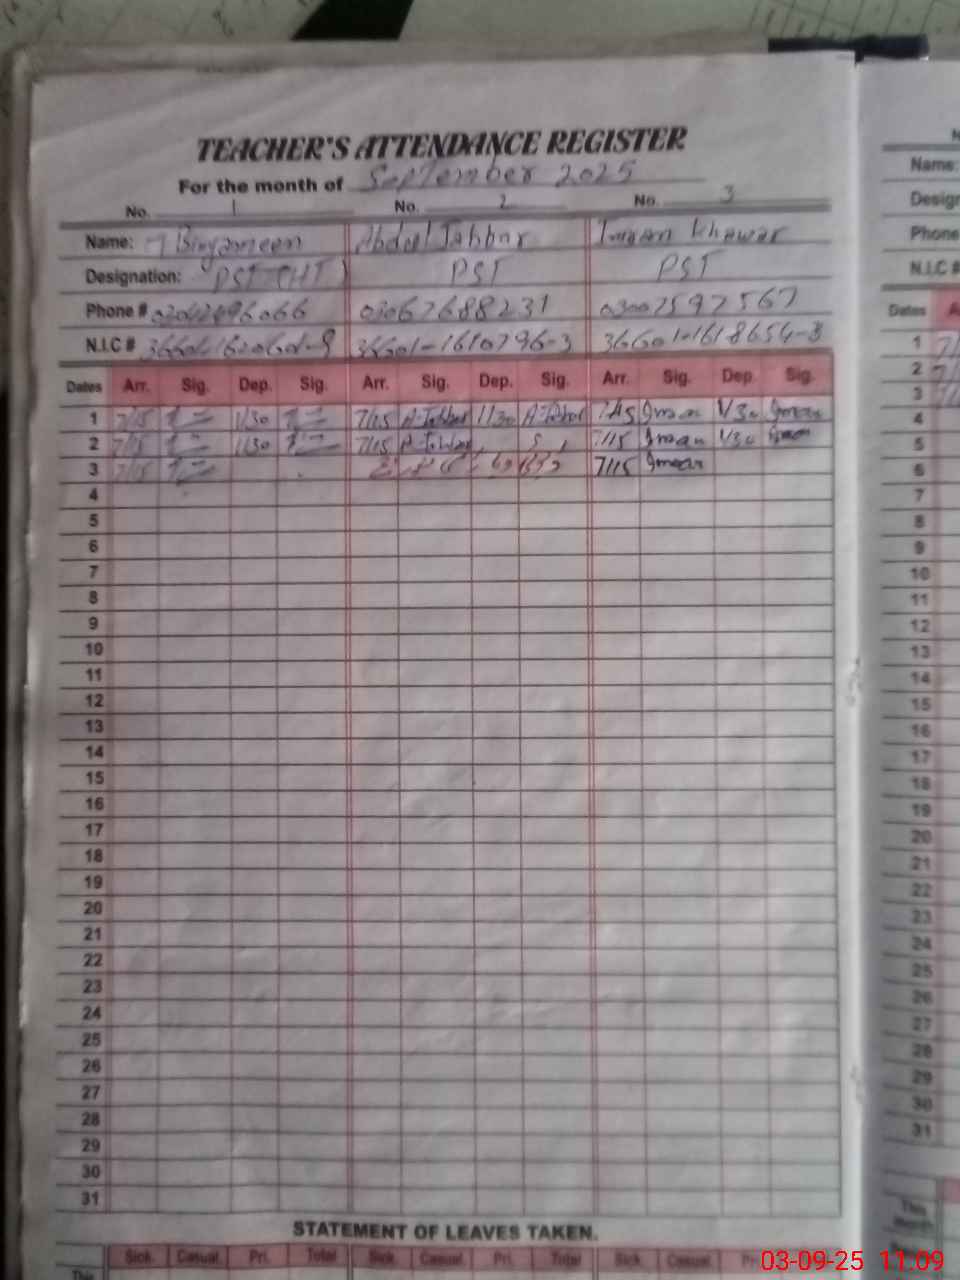 TEACHER'S ATTENDANCE REGISTER
For the month of September 2025
No. 1 No. 2 No. 3
Name: Binyameen Abdul Jabbar Imran Khawar
Designation: PST (HT) PST PST
Phone # 03067688231 03007597567
N.I.C # 36601-1610796-3 36601-1618654-3
Dates Arr. Sig. Dep. Sig. Arr. Sig. Dep. Sig. Arr. Sig. Dep. Sig.
1 7/15 1/30 7/15 A-Jabbar 1/30 A-Jabbar 7/15 Imran 1/30 Imran
2 7/15 1/30 7/15 A-Jabbar 7/15 Imran 1/30 Imran
3 7/15 7/15 Imran
4
5
6
7
8
9
10
11
12
13
14
15
16
17
18
19
20
21
22
23
24
25
26
27
28
29
30
31
STATEMENT OF LEAVES TAKEN.
Sick. Casual. Pri. Total Sick. Casual. Pri. Total Sick. Casual.
This
Name:
Phone
N.I.C #
Dates
1
2
3
4
5
6
7
8
9
10
11
12
13
14
15
16
17
18
19
20
21
22
23
24
25
26
27
28
29
30
31
This
Month
03-09-25 11:09